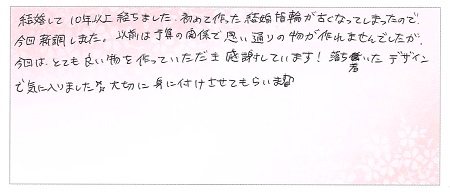 結婚して10年以上経ちました。初めて作った結婚指輪が古くなってしまったので、
今回新調しました。以前は予算の関係で思い通りの物が作れませんでしたが、
今回は、とても良い物を作っていただき感謝しています！落ち着いたデザイン
で気に入りました 大切に身に付けさせてもらいます